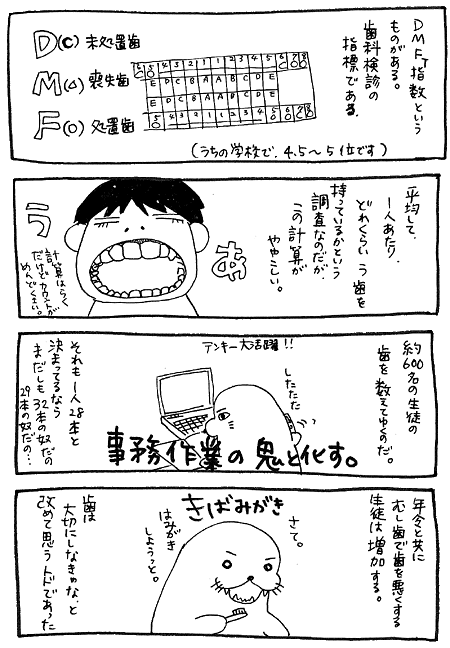 DMFT指数という
ものがある。
歯科検診の
指標である。
D(C) 未処置歯
M(△) 喪失歯
F(○) 処置歯
E D C B A A B C D E
E D C B A A B C D E
(うちの学校で、4.5～5位です)
平均して、
一人あたり、
どれくらい う歯を
持っているかという
調査なのだが、
この計算が
ややこしい。
あ
う
計算はらく
だけどカウントが
めんどくさい。
約600名の生徒の
歯を数えてゆくのだ。
テンキー大活躍!!
したたた
事務作業の鬼と化す。
それも一人28本と
決まってるなら
まだしも32本の奴だの
29本の奴だの…
年令と共に
むし歯で歯を悪くする
生徒は増加する。
きばみがき
さて。
はみがき
しようっと。
歯は
大切にしなきゃな、と
改めて思うトドであった